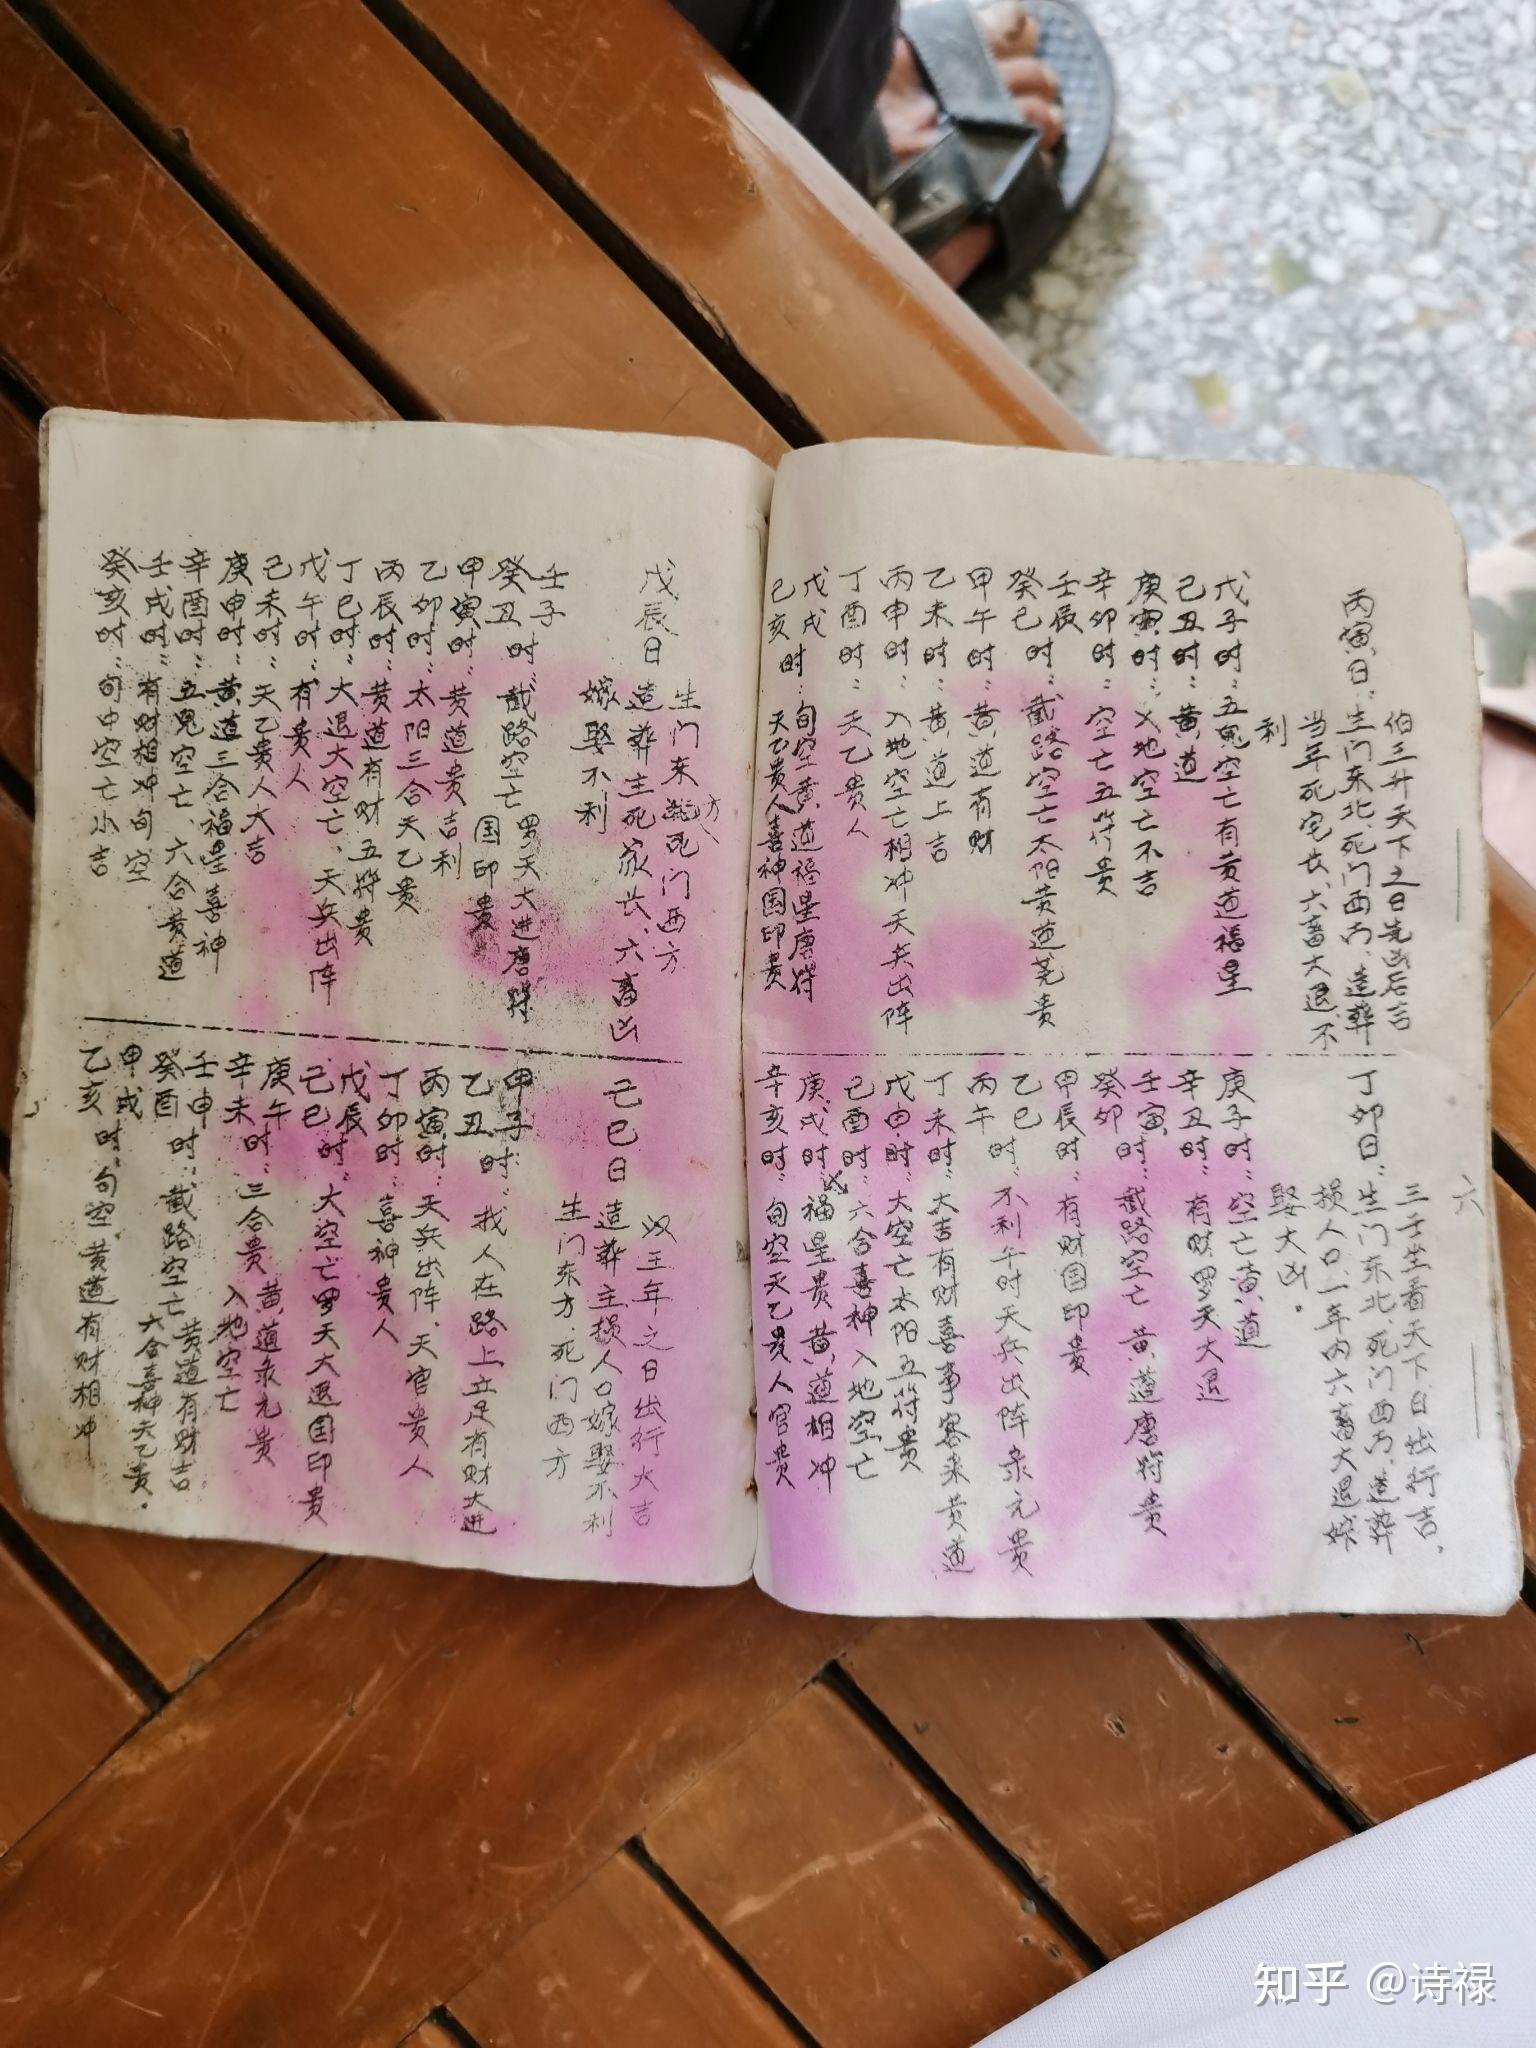 丙寅日：
伯三升天下之日先凶后吉
生门东北、死门西南、造葬
当年死宅长、六畜大退、不
利
戊子时：五鬼空亡有黄道福星
己丑时：黄道
庚寅时：入地空亡不吉
辛卯时：空亡五符贵
壬辰
癸巳时：截路空亡太阳黄道
甲午时：黄道有财
乙未时：黄道上吉
丙申时：入地空亡相冲天兵出阵
丁酉时：天乙贵人
戊戌
己亥时：旬空黄道福星唐符
天乙贵人喜神国印贵
六
丁卯日：
三壬坐看天下日出行吉，
生门东北、死门西南、造葬
损人口、一年内六畜大退嫁
娶大凶。
庚子时：空亡黄道
辛丑时：有财罗天大退
壬寅
癸卯时：截路空亡黄道唐符贵
甲辰时：有财国印贵
乙巳
丙午时：不利午时天兵出阵彔元贵
丁未时：大吉有财喜事客来黄道
戊申时：大空亡太阳五符贵
己酉时：六合喜神入地空亡
庚戌时：福星贵黄道相冲
辛亥时：旬空天乙贵人官贵
戊辰日
生门东方死门西方
造葬主死家长、六畜凶
嫁娶不利
壬子
癸丑时：截路空亡罗天大进唐符
国印贵
甲寅时：黄道贵吉利
乙卯时：太阳三合天乙贵
丙辰时：黄道有财五符贵
丁巳时：大退大空亡、天兵出阵
戊午时：有贵人
己未时：天乙贵人大吉
庚申时：黄道三合福星喜神
辛酉时：五鬼空亡、六合黄道
壬戌时：有财相冲旬空
癸亥时：旬中空亡小吉
己巳日
汉王年之日出行大吉
造葬主损人口嫁娶不利
生门东方、死门西方
甲子
乙丑时：找人在路上立足有财大进
丙寅时：天兵出阵、天官贵人
丁卯时：喜神贵人
戊辰
己巳时：大空亡罗天大退国印贵
庚午
辛未时：三合贵黄道彔元贵
入地空亡
壬申
癸酉时：截路空亡黄道有财吉
六合喜神天乙贵。
甲戌
乙亥时：旬空黄道有财相冲
知乎 @诗禄